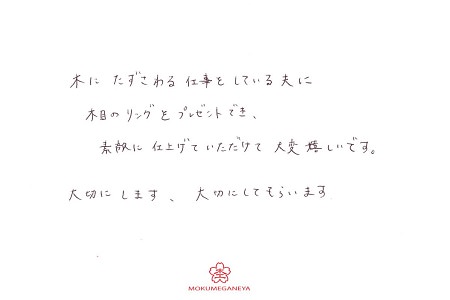 木に たずさわる 仕事を している 夫に
木目の リングを プレゼントでき、
素敵に 仕上げて いただけて 大変 嬉しいです。
大切に します、 大切にして もらいます
MOKUMEGANEYA